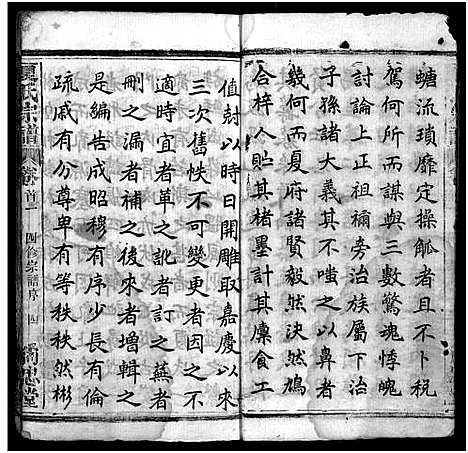 螗流瑣靡定操觚者且不卜稅
駕何所而謀與三數驚魂悸魄
討論上正祖禰旁治族屬下治
子孫諸大義其不嗤之以鼻者
幾何而夏府諸賢毅然決然鳩
合梓人貯其楮墨計其廩食工
值尅以時日開雕取嘉慶以來
三次舊帙不可變更者因之不
適時宜者革之訛者訂之蕪者
刪之漏者補之後來者增輯之
是編告成昭穆有序少長有倫
疏戚有分尊卑有等秩秩然彬
夏氏宗譜 卷首一 四修宗譜序 四 堂